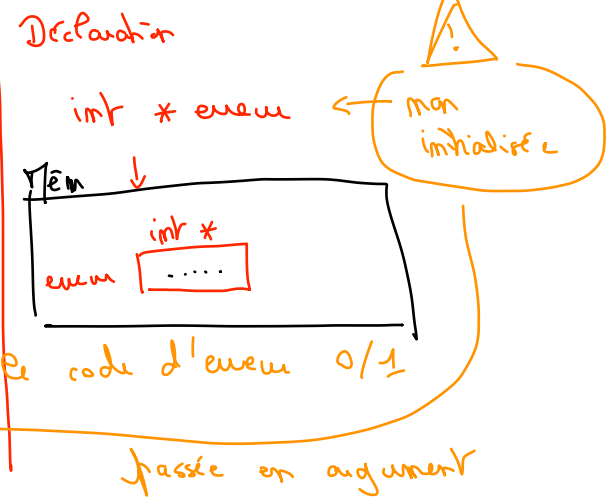 Déclaration
!
int * erreur
non
initialisée
Mém
int *
erreur .....
le code d'erreur 0/1
passée en argument